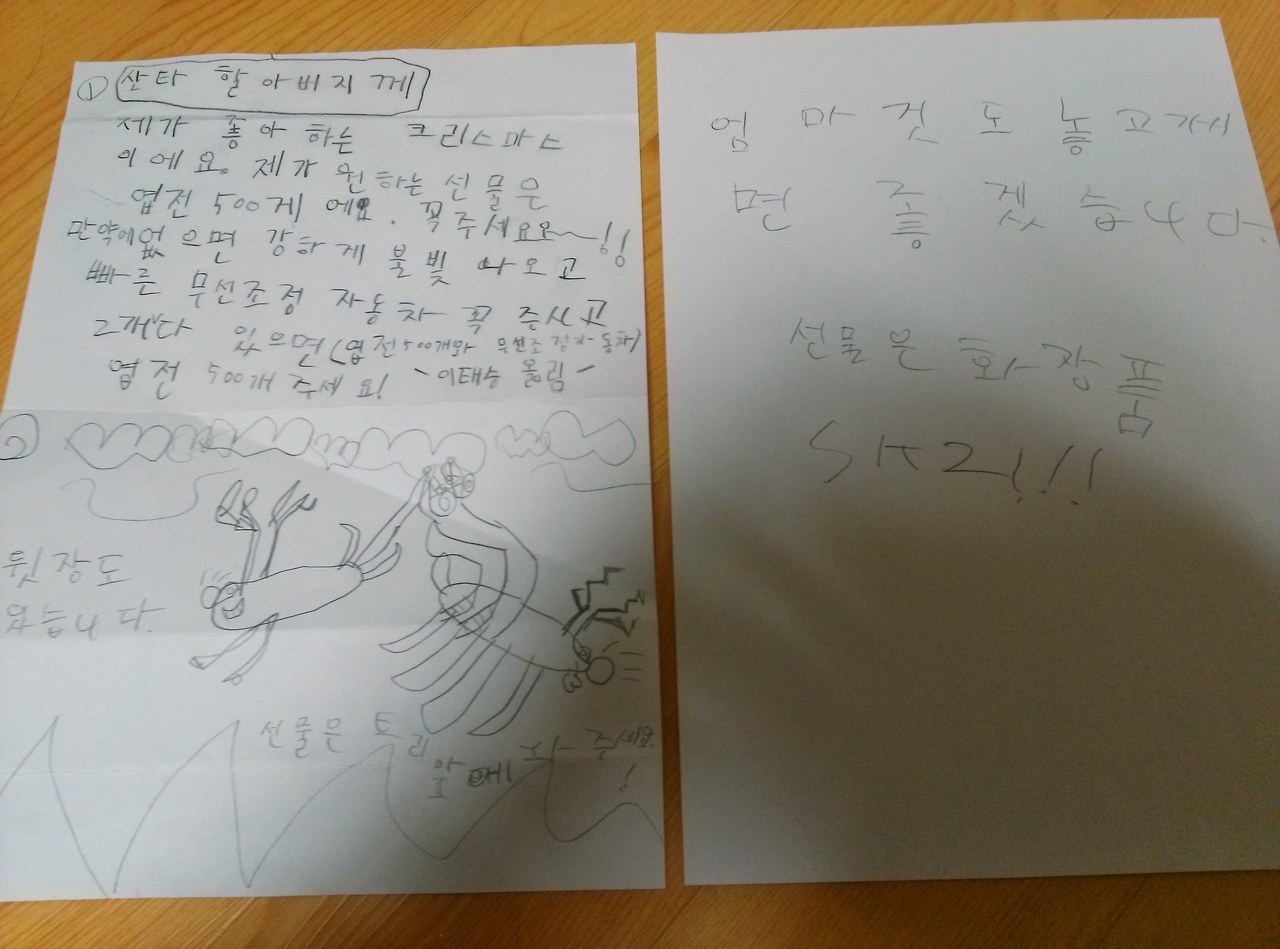 ① 산타 할아버지께
제가 좋아하는 크리스마스
이에요. 제가 원하는 선물은
엽전 500게 에요. 꼭주세요요~!!
만약에없으면 강하게 불빛 나오고
빠른 무선조정 자동차 꼭 주시고
2개다 있으면(엽전500개와 무선조정자동차)
엽전 500개 주세요! -이태승 올림-
②
뒷장도
있습니다.
선물은 트리
앞에 놔 주세요.
!
엄마것도 놓고게
면 좋겠습니다.
선물은 화장품
SK2!!!